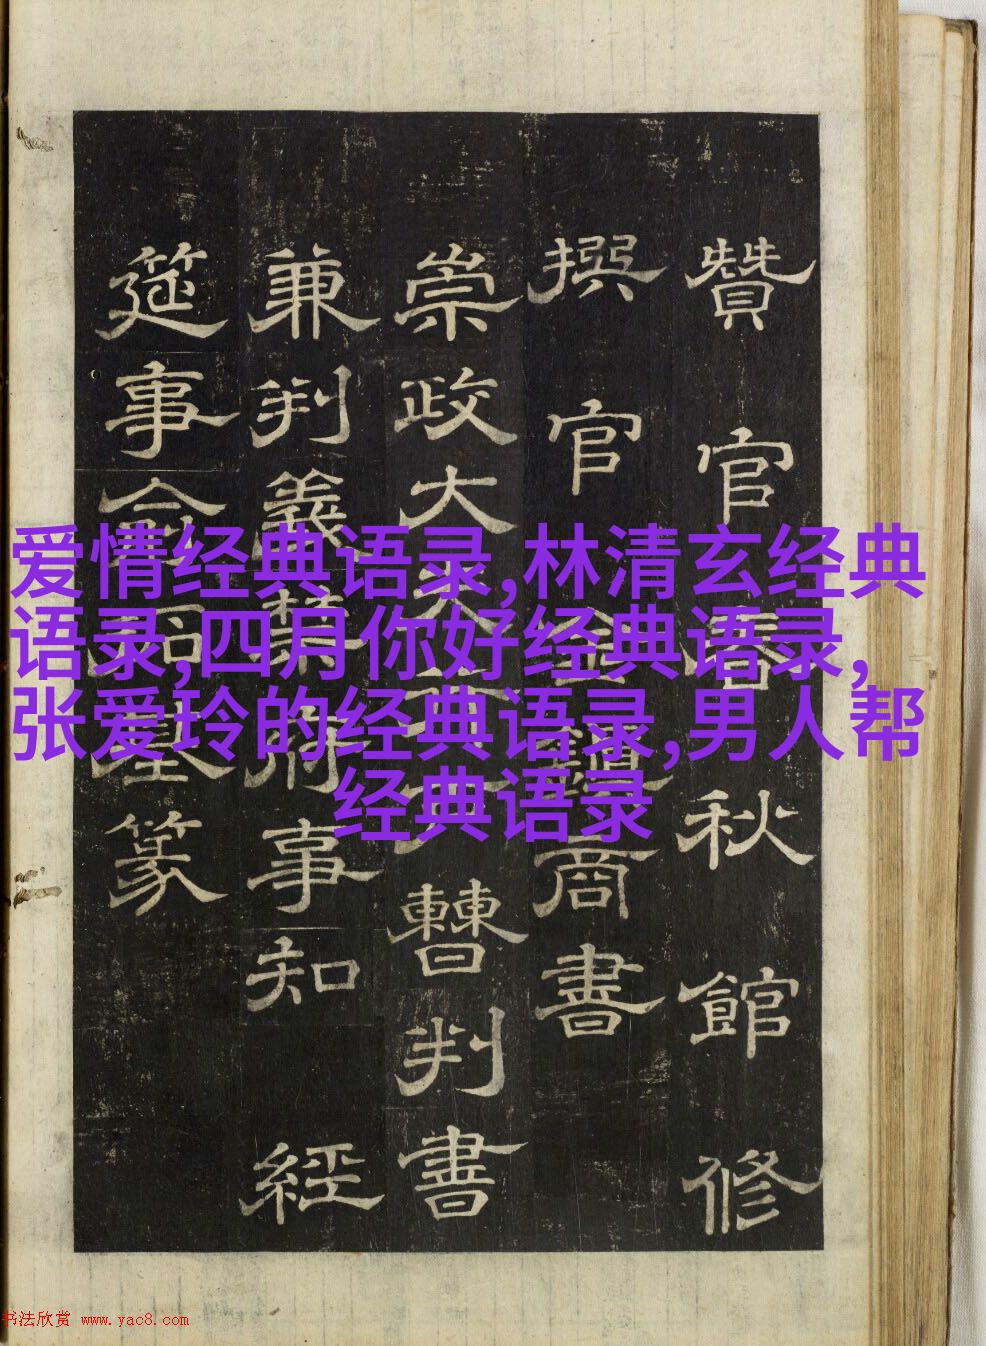 贊官春秋館修
撰官金鎮商書
崇政大夫曹判書
兼判義禁府事知經
筵事俞拓基篆
爱情经典语录,林清玄经典
语录,四月你好经典语录,
张爱玲的经典语录,男人帮
经典语录
书法欣赏 www.yac8.com